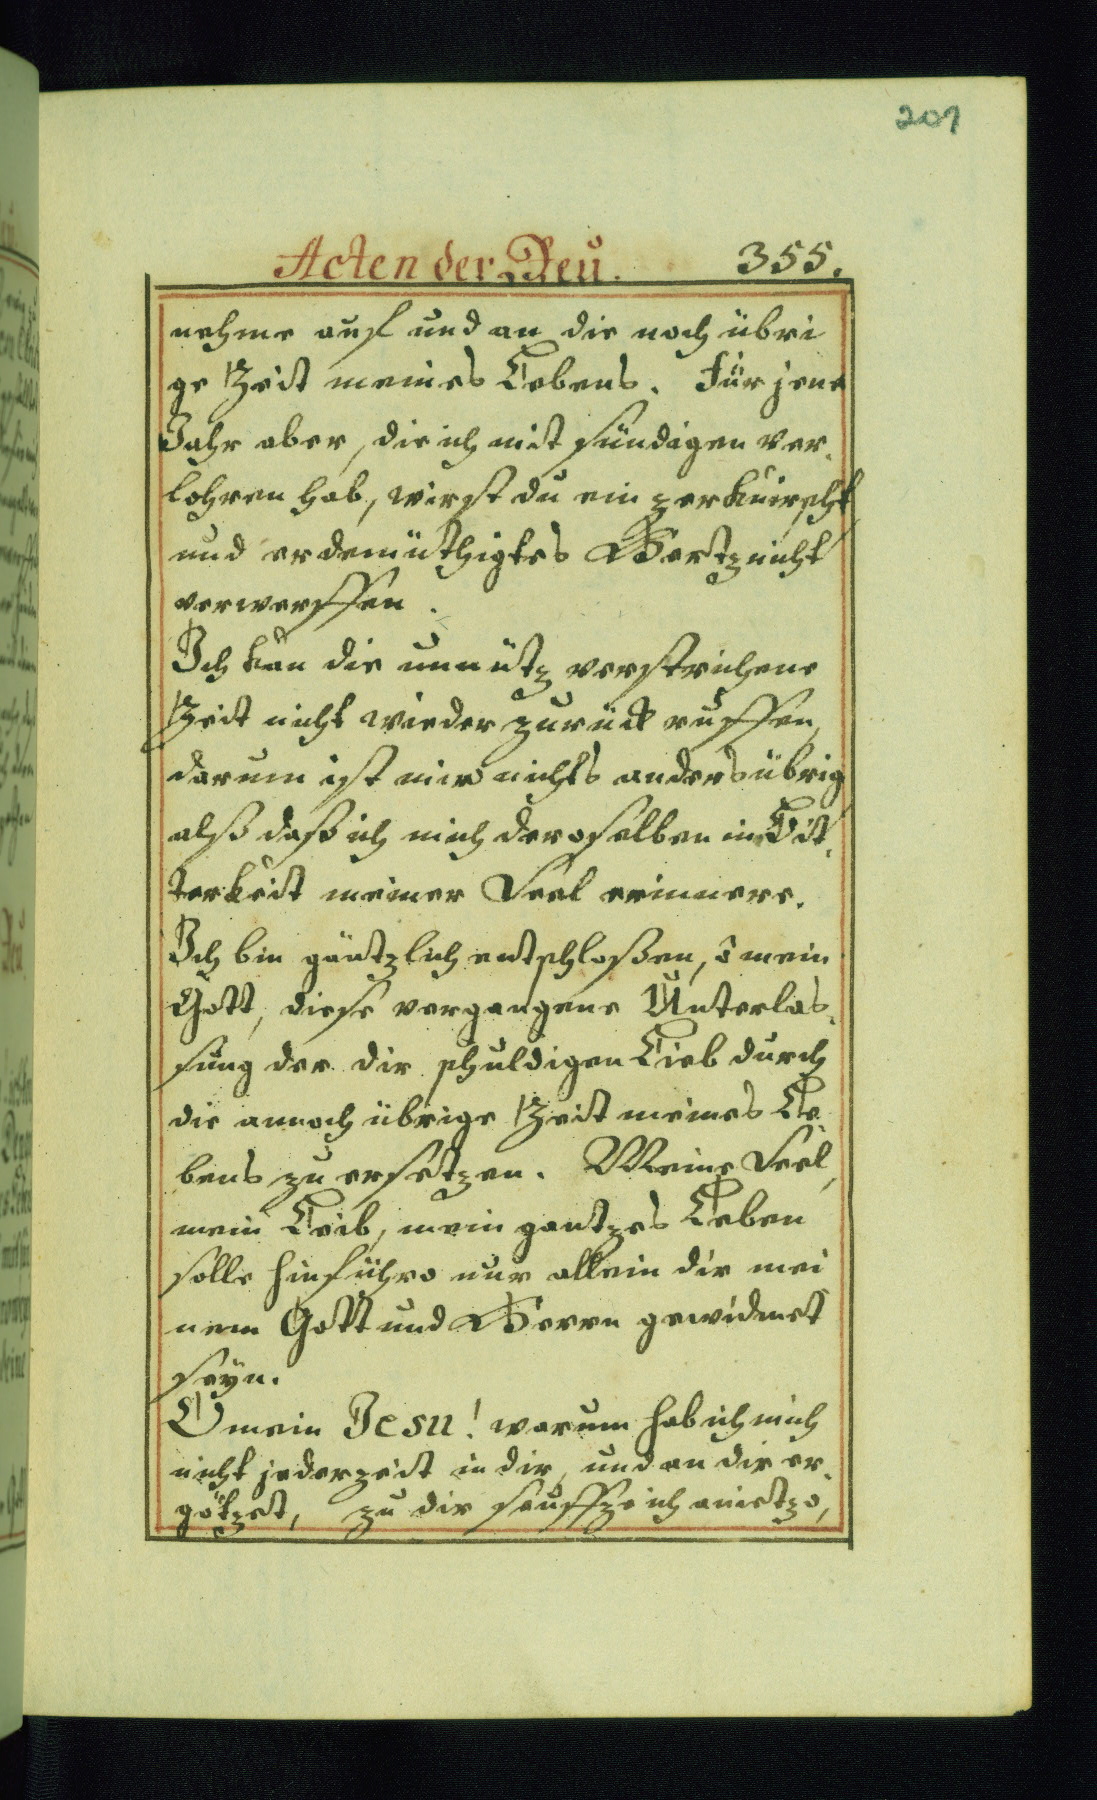 201
Acten der Reü. 355.
nehme auf und an die noch übri
ge Zeit meines Lebens. Für jene
Jahr aber, die ich mit sündigen ver-
lohren hab, wirst du ein zerknirscht
und erdemüthigtes Hertz nicht
verwerffen.
Ich kan die unnütz verstrichene
Zeit nicht wieder zurück ruffen,
darum ist mir nichts anders übrig
alß daß ich mich deroselben in Bit-
terkeit meiner Seel erinnere.
Ich bin gäntzlich entschloßen, ô mein
Gott, diese vergangene Unterlas-
sung der dir schuldigen Lieb durch
die annoch übrige Zeit meines Le-
bens zu ersetzen. Meine Seel,
mein Leib, mein gantzes Leben
solle hinführo nur allein dir mei
nem Gott und Herrn gewidmet
seyn.
O mein Jesu! warum hab ich mich
nicht jederzeit in dir, und an dir er-
götzet, zu dir seuffze ich anietzo,